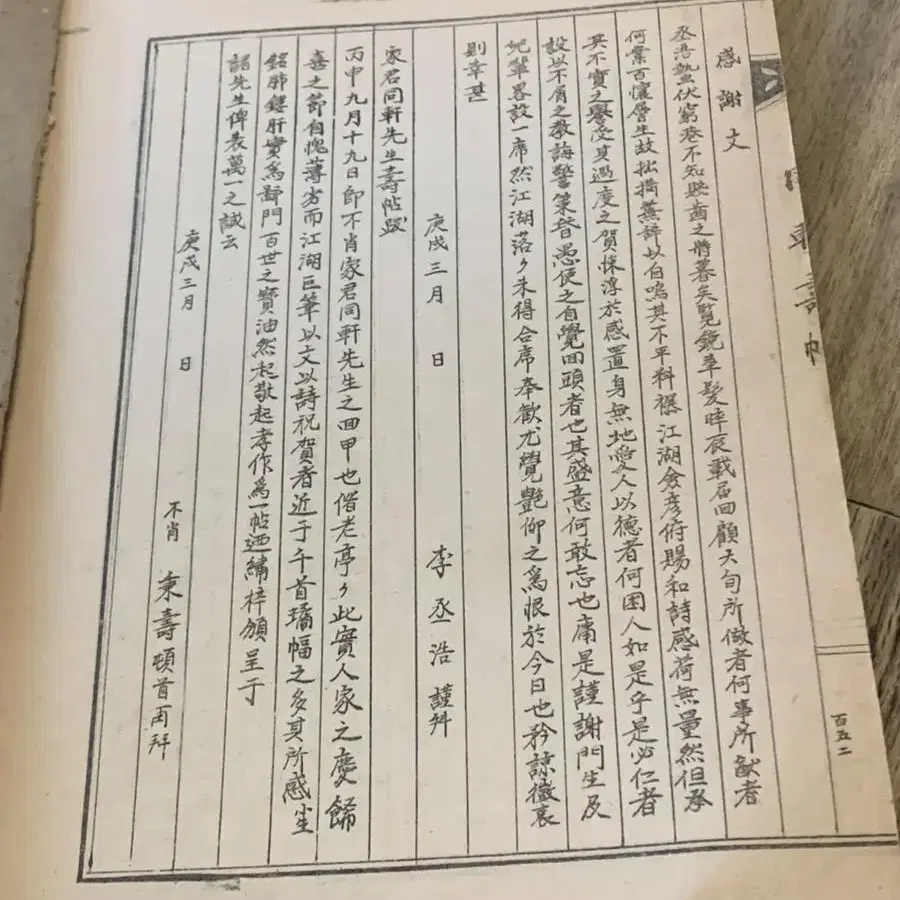 感謝文
丞浩蟄伏窮巷不知駛齒之將暮矣覽鏡華髮晬辰載屆回顧六旬所做者何事所猷者
何業百懷層生故拙搆蕪辭以自鳴其不平料襮江湖僉彦俯賜和詩感荷無量然但承
其不實之譽受其過度之賀悚浮於感置身無地愛人以德者何困人如是乎是必仁者
設以不屑之敎誨警策昏愚使之自覺回頭者也其盛意何敢忘也庸是謹謝門生及
兒輩畧設一席然江湖落々未得合席奉歡尤覺艶仰之爲恨於今日也矜諒微衷
則幸甚
庚戌三月 日 李丞浩 謹拜
家君同軒先生壽帖跋
丙申九月十九日卽不肖家君同軒先生之回甲也偕老亭々此實人家之慶歸
喜之節自愧薄劣而江湖巨筆以文以詩祝賀者近于千首璚幅之多其所感
銘肺鏤肝實爲鄙門百世之寶油然起敬起孝作爲一帖迺繡梓頒呈于
諸先生俾表萬一之誠云
庚戌三月 日 不肖 秉壽頓首再拜
壽帖
百五二